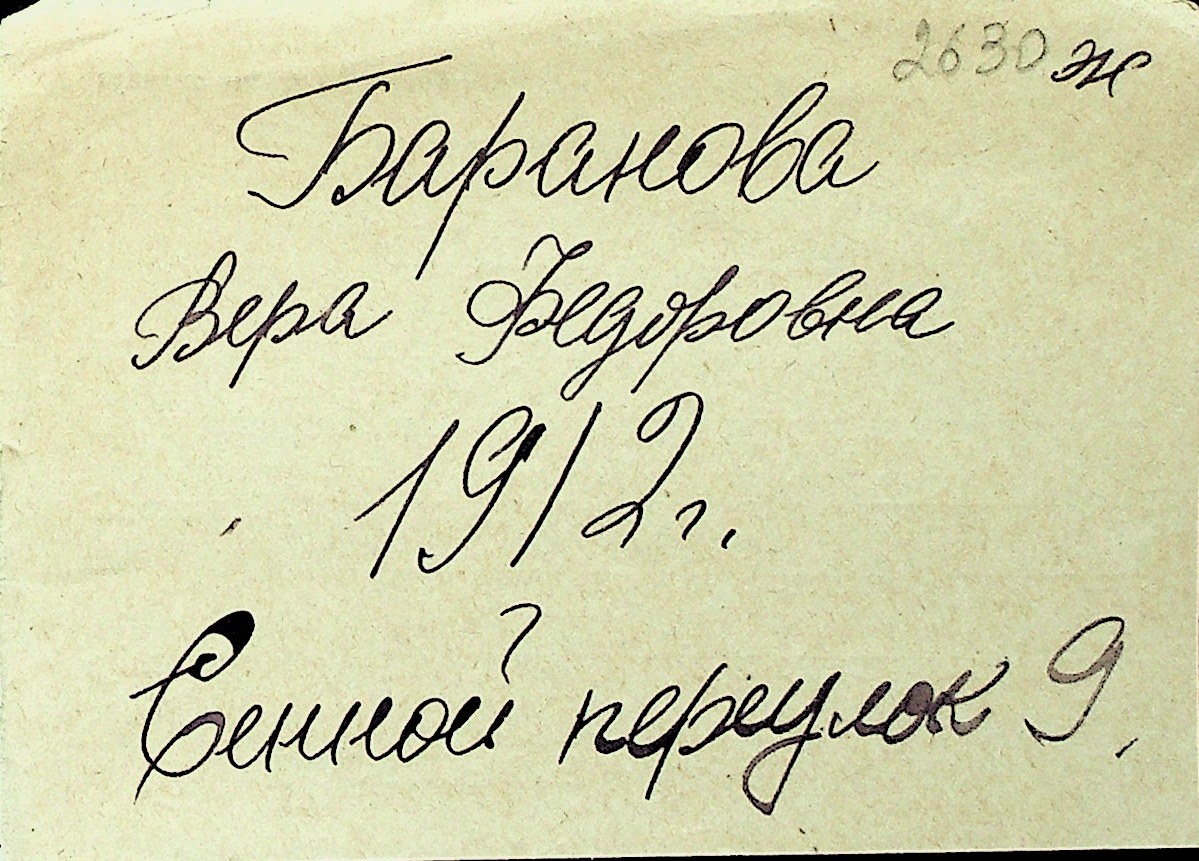 2630 ж
Баранова
Вера Федоровна
1912 г.
Сенной переулок 9.